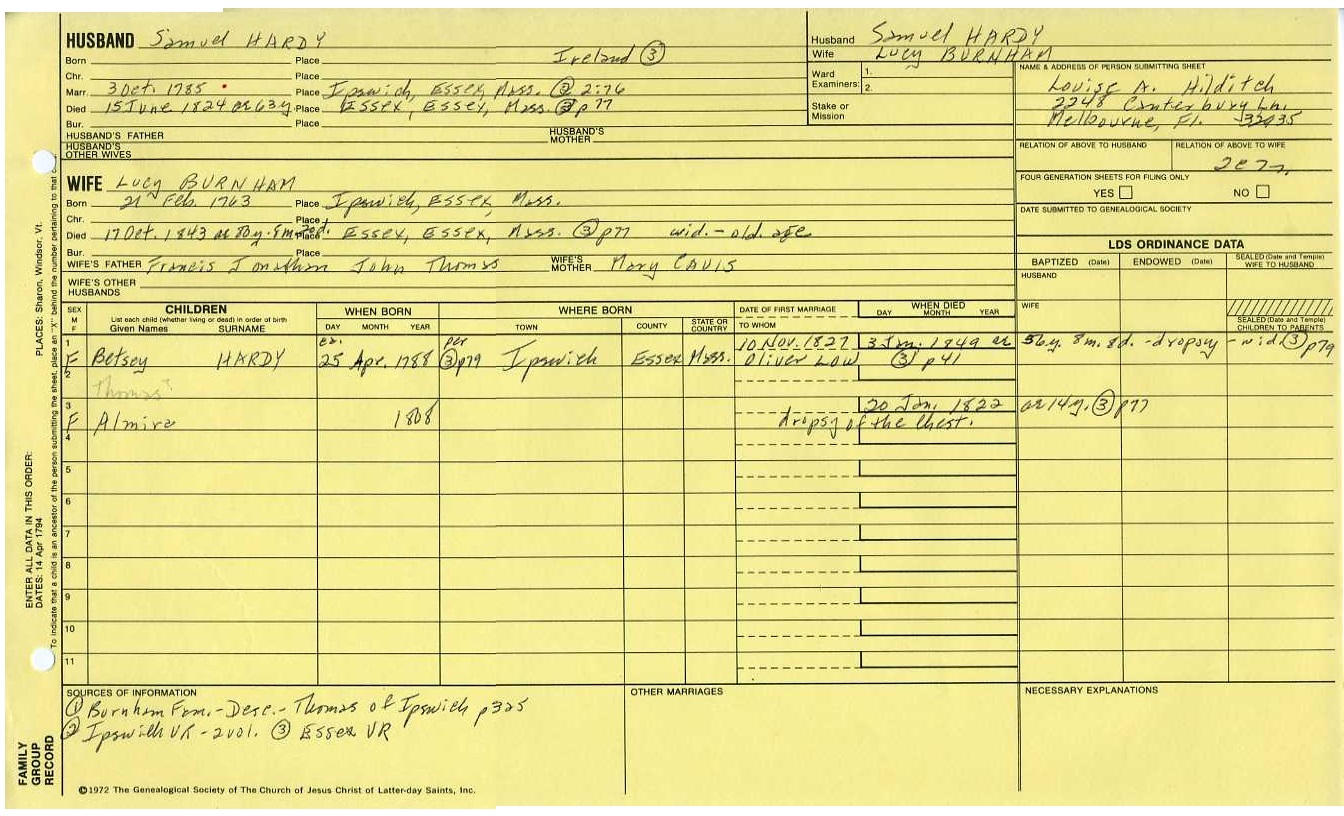 HUSBAND Samuel HARDY
Born Place Ireland ③
Chr. Place
Marr. 3 Oct. 1785 Place Ipswich, Essex, Mass. ② 2:76
Died 15 June 1824 ae 63y. Place Essex, Essex, Mass. ③ p77
Bur. Place
HUSBAND'S FATHER HUSBAND'S MOTHER
HUSBAND'S OTHER WIVES
Husband Samuel HARDY
Wife Lucy BURNHAM
Ward Examiners: 1. 2.
Stake or Mission
NAME & ADDRESS OF PERSON SUBMITTING SHEET
Louise A. Hilditch
2248 Canterbury Ln.
Melbourne, Fl. 32935
RELATION OF ABOVE TO HUSBAND RELATION OF ABOVE TO WIFE
FOUR GENERATION SHEETS FOR FILING ONLY
YES NO
DATE SUBMITTED TO GENEALOGICAL SOCIETY
WIFE Lucy BURNHAM
Born 21 Feb. 1763 Place Ipswich, Essex, Mass.
Chr. Place
Died 17 Oct. 1843 ae 80y. 8m. Place Essex, Essex, Mass. ③ p77 wid. - old age
Bur. Place
WIFE'S FATHER Francis Jonathan John Thomas WIFE'S MOTHER Mary CAVIS
WIFE'S OTHER HUSBANDS
LDS ORDINANCE DATA
BAPTIZED (Date) ENDOWED (Date) SEALED (Date and Temple) WIFE TO HUSBAND
HUSBAND
WIFE
SEALED (Date and Temple) CHILDREN TO PARENTS
SEX M F CHILDREN WHEN BORN WHERE BORN DATE OF FIRST MARRIAGE WHEN DIED
List each child (whether living or dead) in order of birth
Given Names SURNAME DAY MONTH YEAR TOWN COUNTY STATE OR COUNTRY TO WHOM DAY MONTH YEAR
1 ca. per 10 Nov. 1827 3 Jan. 1849 ae 56y. 8m. 8d. - dropsy - wid. ③ p79
F Betsey HARDY 25 Apr. 1788 ③ p79 Ipswich Essex Mass. Oliver LOW ③ p41
2
Thomas?
3 20 Jan. 1822 ae 14y. ③ p77
F Almira 1808 dropsy of the chest.
4
5
6
7
8
9
10
11
SOURCES OF INFORMATION
① Burnham Fam.-Desc.- Thomas of Ipswich p325
② Ipswich VR - 2vol. ③ Essex VR
OTHER MARRIAGES
NECESSARY EXPLANATIONS
©1972 The Genealogical Society of The Church of Jesus Christ of Latter-day Saints, Inc.
FAMILY GROUP RECORD
ENTER ALL DATA IN THIS ORDER:
DATES: 14 Apr 1794
PLACES: Sharon, Windsor, Vt.
To indicate that a child is an ancestor of the person submitting the sheet, place an "X" behind the number pertaining to that